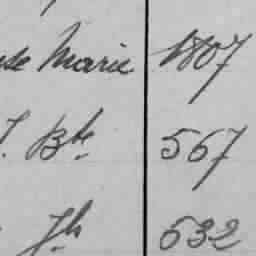 Marie 1807
J. Bte 567
Jh 532